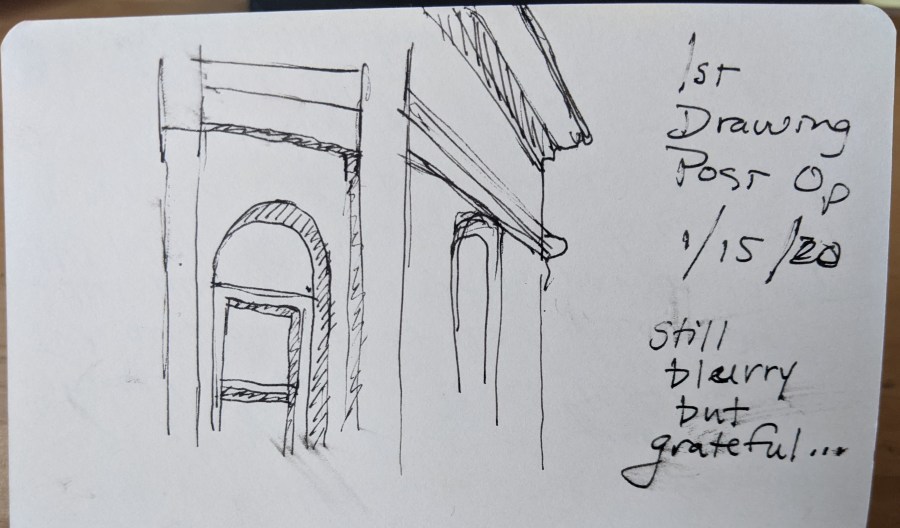 1st
Drawing
Post Op
1/15/20
Still
blurry
but
grateful...